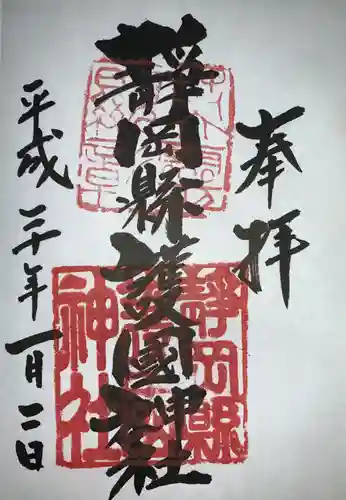 奉拝
靜岡縣護國神社
靜岡縣護國神社
平成三十年一月二日